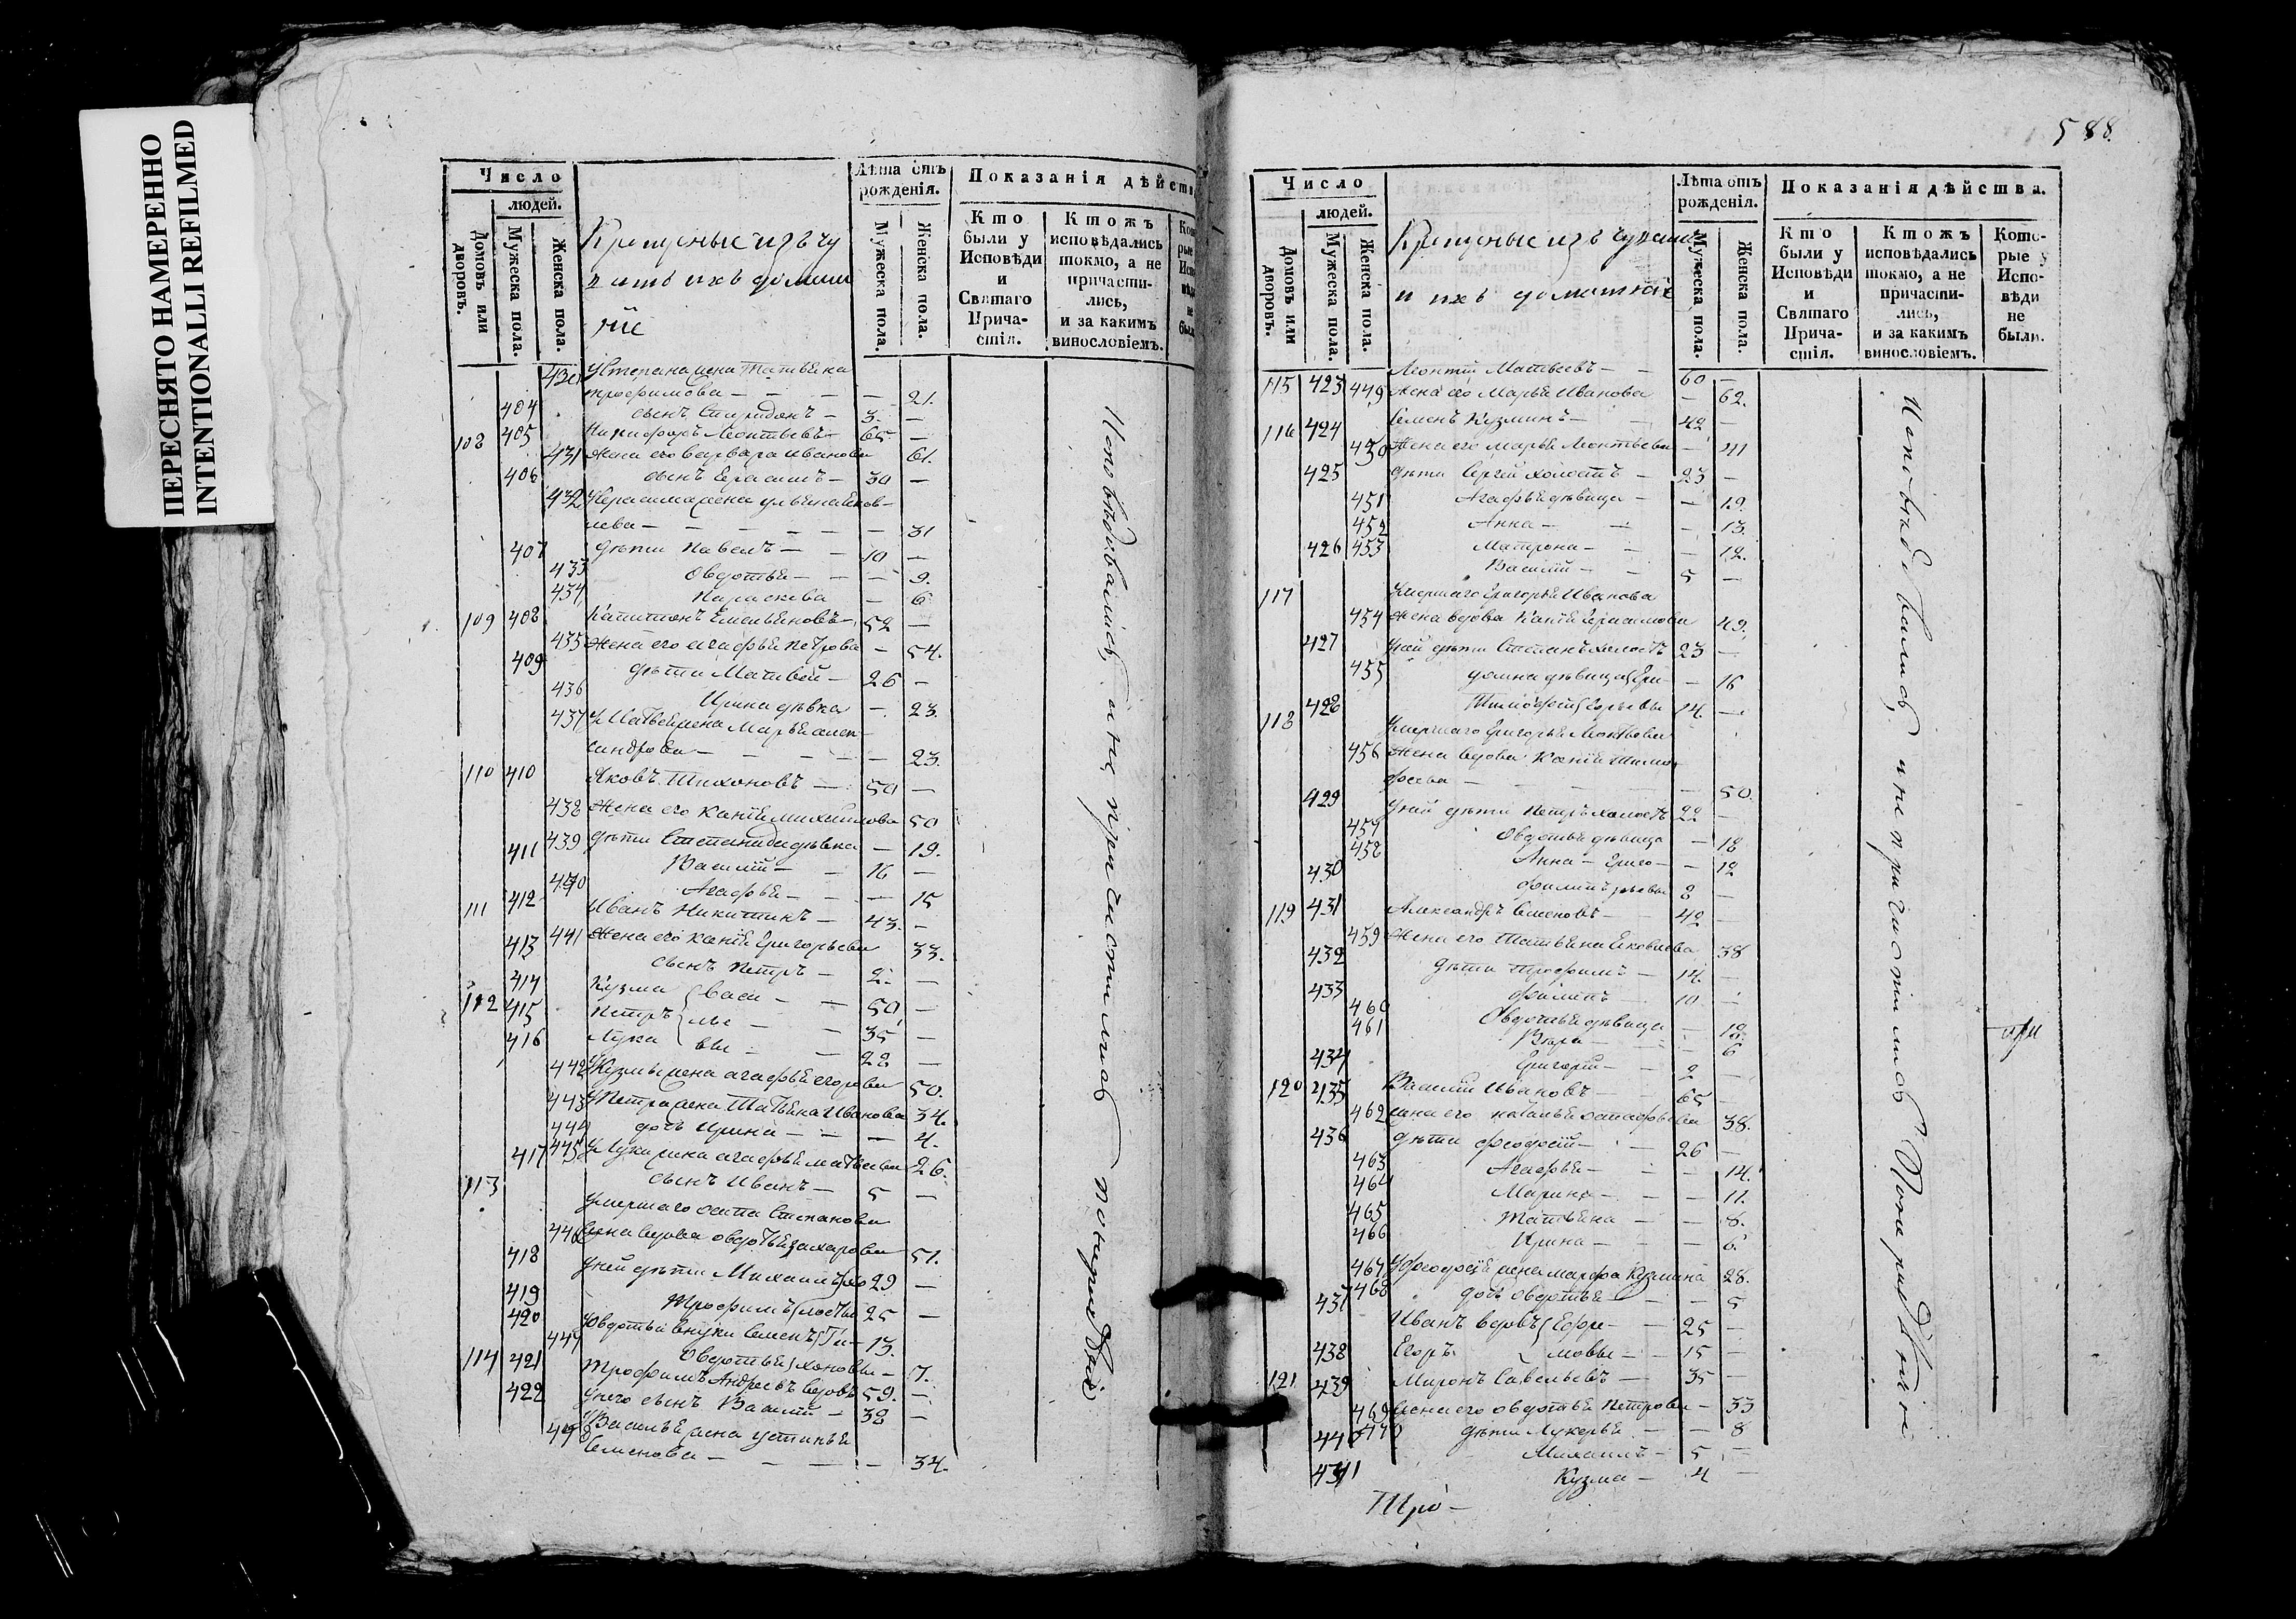 ПЕРЕСНЯТО НАМЕРЕННО
INTENTIONALLI REFILMED
Число
людей.
Домовъ или дворовъ.
Мужеска пола.
Женска пола.
Крещеные изъ чу
вашъ ихъ домаш
ніе
Лѣта отъ рожденія.
Мужеска пола.
Женска пола.
Показанія дѣйств
Кто были у Исповѣди и Святаго Причастія.
Ктожъ исповѣдались токмо, а не причастились, и за какимъ винословіемъ.
430 жена Татьяна
трофимова — — 21.
404 сынъ Спиридонъ — 3 —
108 405 Никифоръ Леонтьевъ — 65 —
431 Жена его варвара иванова 61.
406 сынъ Герасимъ — 30 —
432 Уерасима жена ульяна яков-
лева — — — — 31
407 дѣти Павелъ — — 10 —
433 Овдотья — — — 9.
434 Параскева — 6
109 408 Капитонъ Емельяновъ — 52 —
435 Жена его агафья петрова — 54.
409 дѣти Матвей — 26 —
436 Ирина дѣвка — 23.
437 У Матвея жена Марья алек-
сандрова — — — — 23.
110 410 Яковъ Тихоновъ — 50 —
438 Жена его михайлова 50
439 дѣти Степанида дѣвка — 19.
411 Василій — — 16 —
440 Агафья — — — 15
111 412 Иванъ Никитинъ — 43. —
441 Жена его Григорьева 33.
413 сынъ Петръ — 2. —
112 414 Кузма васи — — 50 —
415 Петръ лье — — 35 —
416 Лука вы — — 28 —
442 У Кузмы жена агафья егорова 50.
443 У Петра жена Татьяна Иванова 34.
444 дочь Ирина — — — 4.
445 У Луки жена агафья матвеева 26.
417 сынъ Иванъ — 5 —
113 Умершаго осипа Степанова
446 жена вдова овдотья захарова 51.
418 У ней дѣти Михаилъ хо 29 —
419 Трофимъ лосты 25 —
420 У овдотьи внуки Семенъ Ти — 13.
447 Овдотья хоновы — 7.
114 421 Трофимъ Андреевъ вдовъ 59. —
422 У него сынъ Василій — 32 —
448 У Василья жена устинья
Семенова — — — — 34.
Исповѣдовались, а не причастились по нерадѣнію
588.
Число
людей.
Домовъ или дворовъ.
Мужеска пола.
Женска пола.
Крещеные изъ чувашъ
и ихъ домашніе
Лѣта отъ рожденія.
Мужеска пола.
Женска пола.
Показанія дѣйства.
Кто были у Исповѣди и Святаго Причастія.
Ктожъ исповѣдались токмо, а не причастились, и за какимъ винословіемъ.
Которые у Исповѣди не были.
115 423 Леонтій Матвеевъ — 60 —
449 Жена его Марья Иванова — 62.
116 424 Семенъ Кузминъ — 42 —
450 Жена его марья Леонтьева — 41
425 дѣти Сергей холостъ — 23 —
451 Агафья дѣвица — — 19.
452 Анна — — — 13.
426 453 Матрона — — — 12.
Василій — — 5 —
117 Умершаго Григорья Иванова
454 Жена вдова Герасимова 49.
427 У ней дѣти Степанъ холостъ 23 —
455 домна дѣвица Гри — 16
428 Тимофей горьевы 14. —
118 Умершаго Григорья
456 Жена вдова Тимо
феева — — — — 50.
429 У ней дѣти Петръ холостъ 22 —
457 Овдотья дѣвица — 18
458 Анна — Григо — — 12
430 филипъ рьевы 8 —
119 431 Александръ Семеновъ — 42 —
459 Жена его Татьяна яковлева 38
432 дѣти трофимъ — 14. —
433 филипъ — 10 —
460 Овдотья дѣвица — 18.
461 Вера — — 6
434 Григорій — — 2 —
120 435 Василій Ивановъ — 65 —
462 жена его наталья 38.
436 дѣти феодосій — 26 —
463 Агафья — — — 14.
464 Марина — — — 11.
465 Татьяна — — 8.
466 Ирина — — — 6.
467 У феодосія жена марфа Кузмина 28.
468 дочь овдотья — — 5
437 Иванъ вдовъ Ефре — 25 —
438 Егоръ мовы — 15 —
121 439 Миронъ Савельевъ — 35 —
469 жена его овдотья Петрова — 33
470 дѣти Лукерья — — 8
440 Михаилъ — 5 —
441 Кузма — 4 —
Тро —
Исповѣдовались, а не причастились По нерадѣнію